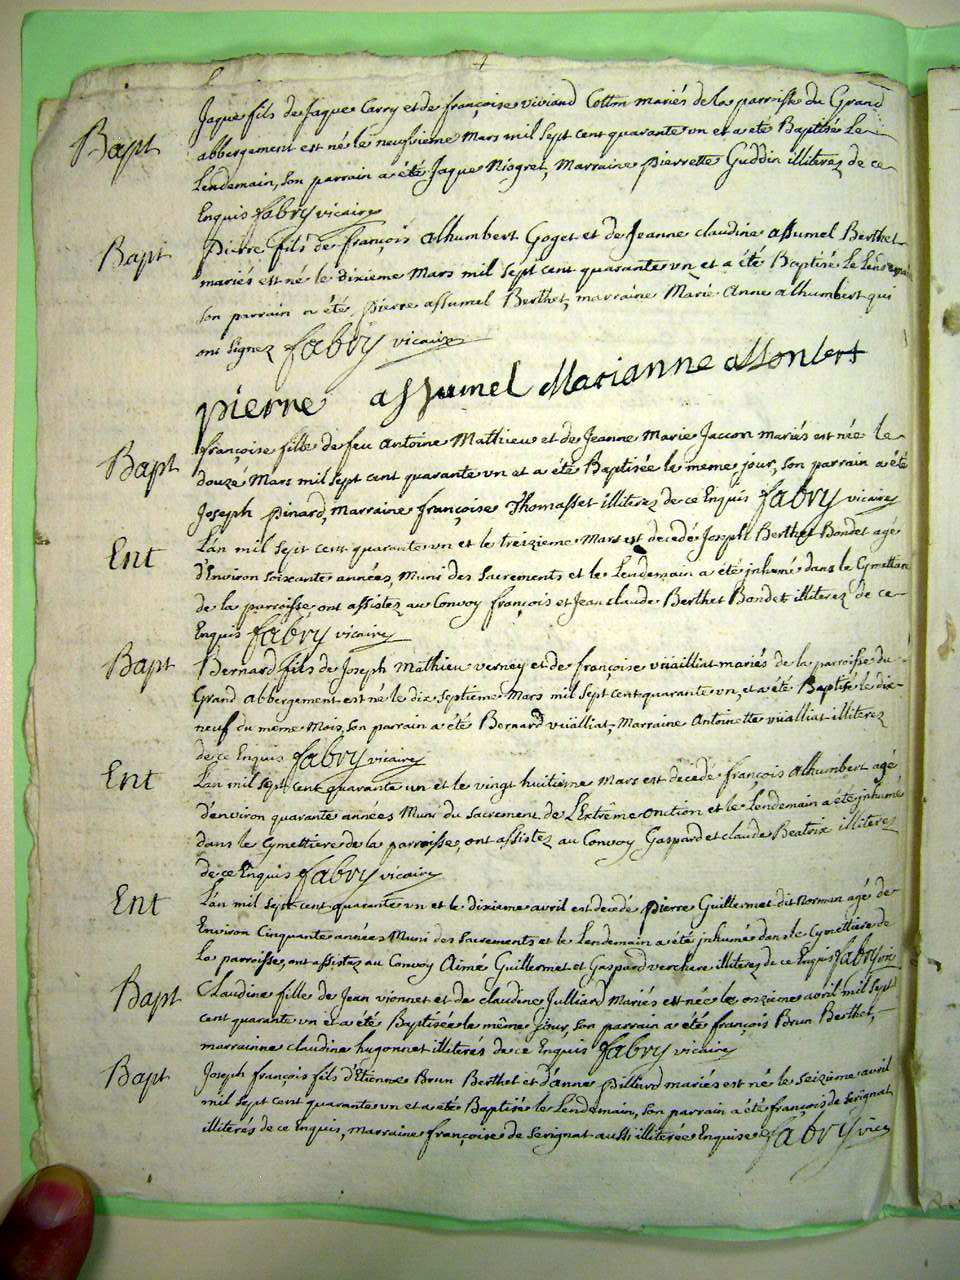 Bapt
Jaque fils de Jaque Carry et de françoise viviand Cotton mariés de la parroisse du Grand
abbergement est né le neufvieme Mars mil sept cent quarante un et a eté Baptisé Le
Lendemain, son parrain a été Jaque Niogret, Marraine pierrette Guddin illiterez de ce
Enquis fabry vicaire
Bapt
Pierre fils de françois alhumbert Goget et de Jeanne claudine assumel Berthet
mariés est né le dixieme Mars mil sept cent quarante un et a été Baptisé Le Lendemain
son parrain a été pierre assumel Berthet, marraine Marie Anne alhumbert qui
ont signez fabry vicaire
pierre assumel Marianne allonbert
Bapt
françoise fille de feu Antoine Mathieu et de Jeanne Marie Jaccon mariés est née le
douze Mars mil sept cent quarante un et a été Baptisée le meme jour, son parrain a été
Joseph pinard, Marraine françoise Thomasset illiterez de ce Enquis fabry vicaire
Ent
L'an mil sept cent quarante un et le treizieme Mars est décedé Joseph Berthet Bondet agé
d'Environ soixante années, Muni des Sacrements et le Lendemain a été jnhumé dans le Cymettiere
de la parroisse ont assistez au Convoy françois et Jean claude Berthet Bondet illiterez de ce
Enquis fabry vicaire
Bapt
Bernard fils de Joseph Mathieu verney et de françoise viüailliat mariés de la paroisse du
Grand abbergement est né le dix septieme Mars mil sept cent quarante un, et a été Baptisé le dix
neuf du même Mois, son parrain a été Bernard viüalliat, Marraine Antoinette viüalliat illiterez
de ce Enquis fabry vicaire
Ent
L'an mil sept cent quarante un et le vingt huitieme Mars est décedé françois alhumbert agé
d'environ quarante années Muni du Sacrement de L'Extrême onction et le lendemain a été jnhumé
dans le Cymettiere de la parroisse, ont assistez au Convoy Gaspard et claude Beatrix illiterez
de ce Enquis fabry vicaire
Ent
L'an mil sept cent quarante un et le dixieme avril est decedé pierre Guillermet dit Norman agé de
Environ Cinquante années Muni des Sacrements et le Lendemain a été jnhumé dans le Cymettiere de
La parroisse, ont assistez au Convoy Aimé Guillermet et Gaspard verchere illiterez de ce Enquis fabry vic
Bapt
Claudine fille de Jean vionnet et de claudine Julliard Mariés est née le onzieme avril mil sept
cent quarante un et a été Baptisée le même jour, son parrain a été françois Brun Berthet,
marrainne claudine hugonnet illiterés de ce Enquis fabry vicaire
Bapt
Joseph françois fils d'Etienne Brun Berthet et d'anne pilliard mariés est né le seizieme avril
mil sept cent quarante un et a été Baptisé le Lendemain, son parrain a été françois de serignat
illiterés de ce Enquis, Marraine françoise de Serignat aussi illiterée Enquise fabry vica